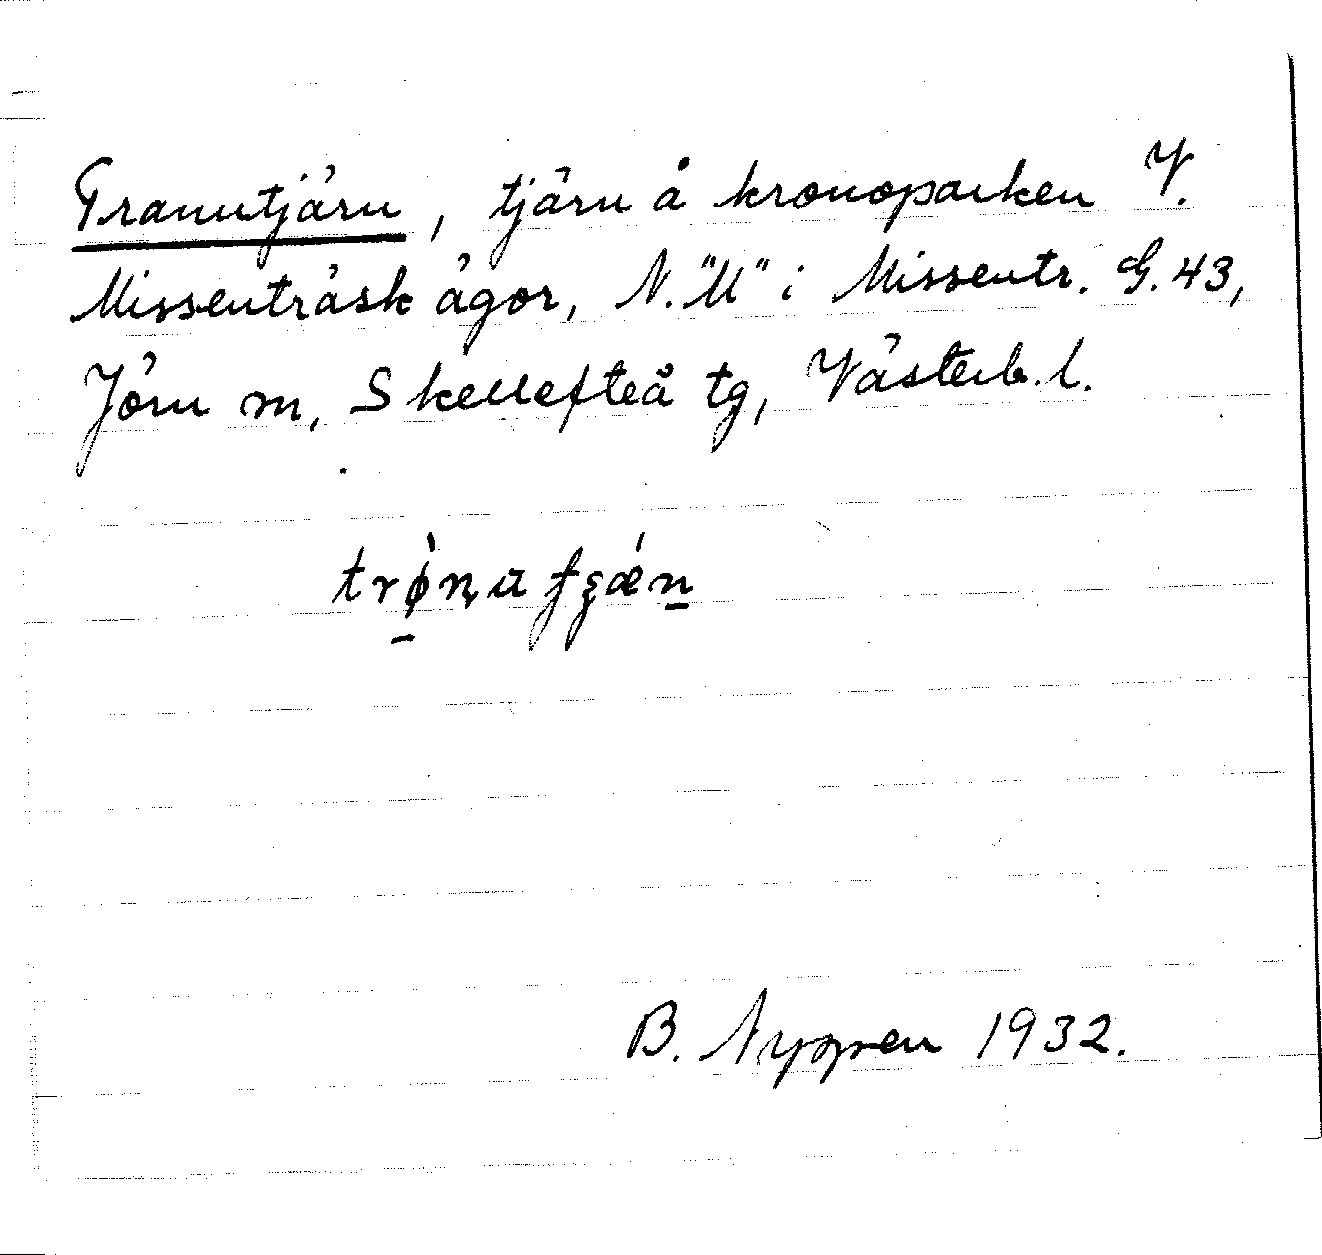 Tranutjärn, tjärn å kronoparken V.
Missenträsk ägor, N. "M" i Missentr. G. 43,
Jörn sn, Skellefteå tg, Västerb. l.
B. Nygren 1932.